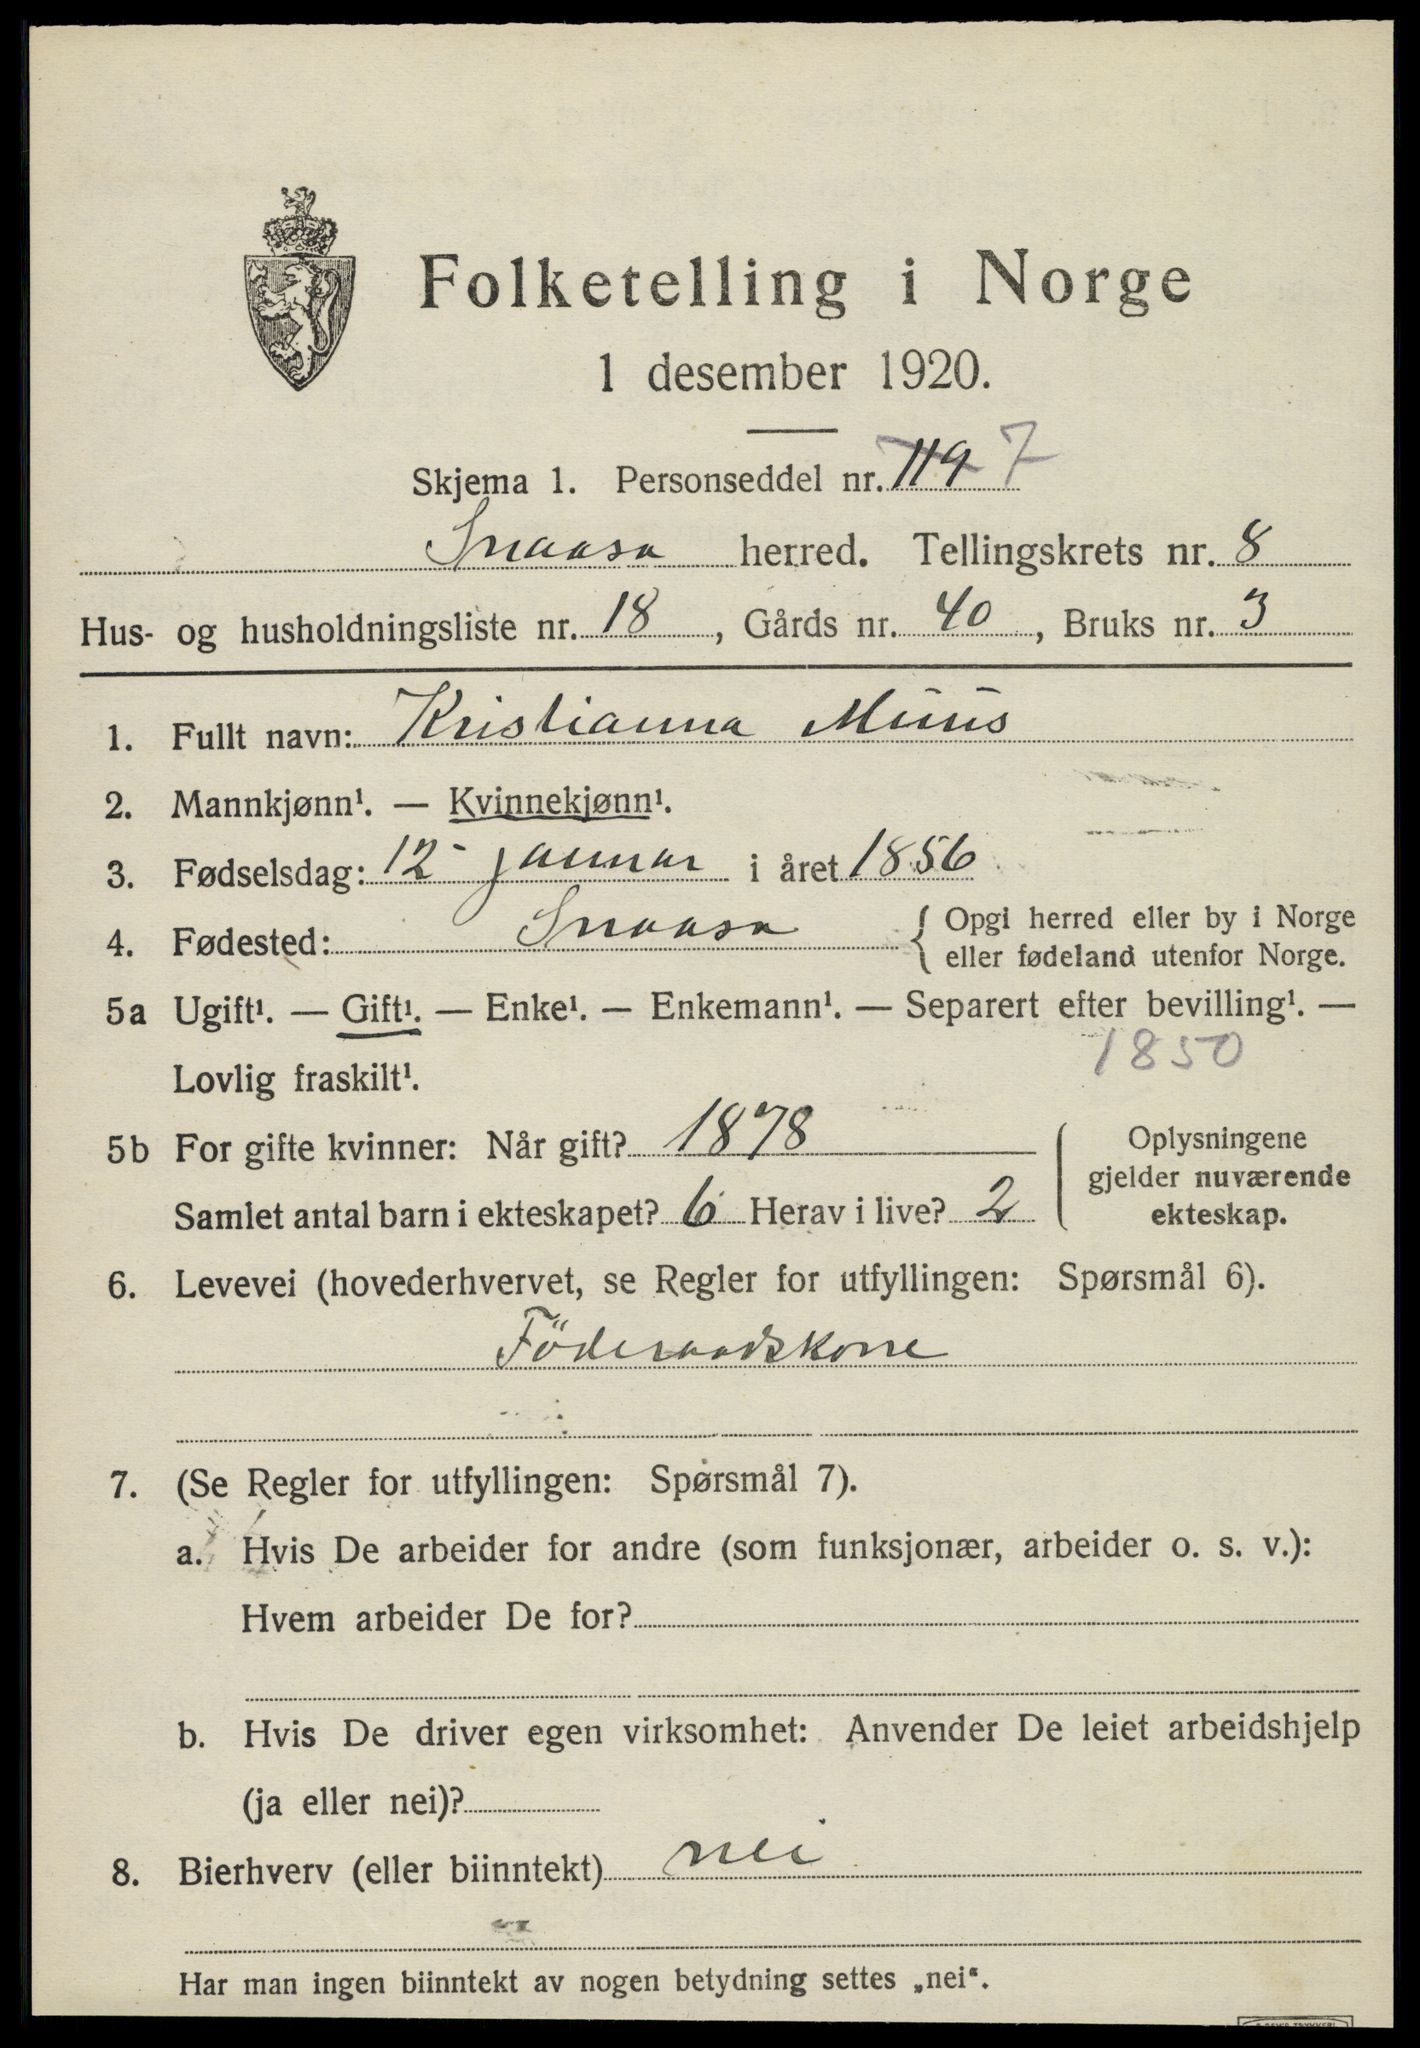 Folketelling i Norge
1 desember 1920.
Skjema 1. Personseddel nr. 119 7
Snaasa herred. Tellingskrets nr. 8
Hus- og husholdningsliste nr. 18, Gårds nr. 40, Bruks nr. 3
1. Fullt navn: Kristianna Muus
2. Mannkjønn¹. — Kvinnekjønn¹.
3. Fødselsdag: 12 januar i året 1856
4. Fødested: Snaasa { Opgi herred eller by i Norge
eller fødeland utenfor Norge.
5a Ugift¹. — Gift¹. — Enke¹. — Enkemann¹. — Separert efter bevilling¹. —
Lovlig fraskilt¹. 1850
5b For gifte kvinner: Når gift? 1878
Samlet antal barn i ekteskapet? 6 Herav i live? 2
Oplysningene
gjelder nuværende
ekteskap.
6. Levevei (hovederhvervet, se Regler for utfyllingen: Spørsmål 6).
Föderaadskone
7. (Se Regler for utfyllingen: Spørsmål 7).
a. Hvis De arbeider for andre (som funksjonær, arbeider o. s. v.):
Hvem arbeider De for?
b. Hvis De driver egen virksomhet: Anvender De leiet arbeidshjelp
(ja eller nei)?
8. Bierhverv (eller biinntekt) nei
Har man ingen biinntekt av nogen betydning settes „nei".